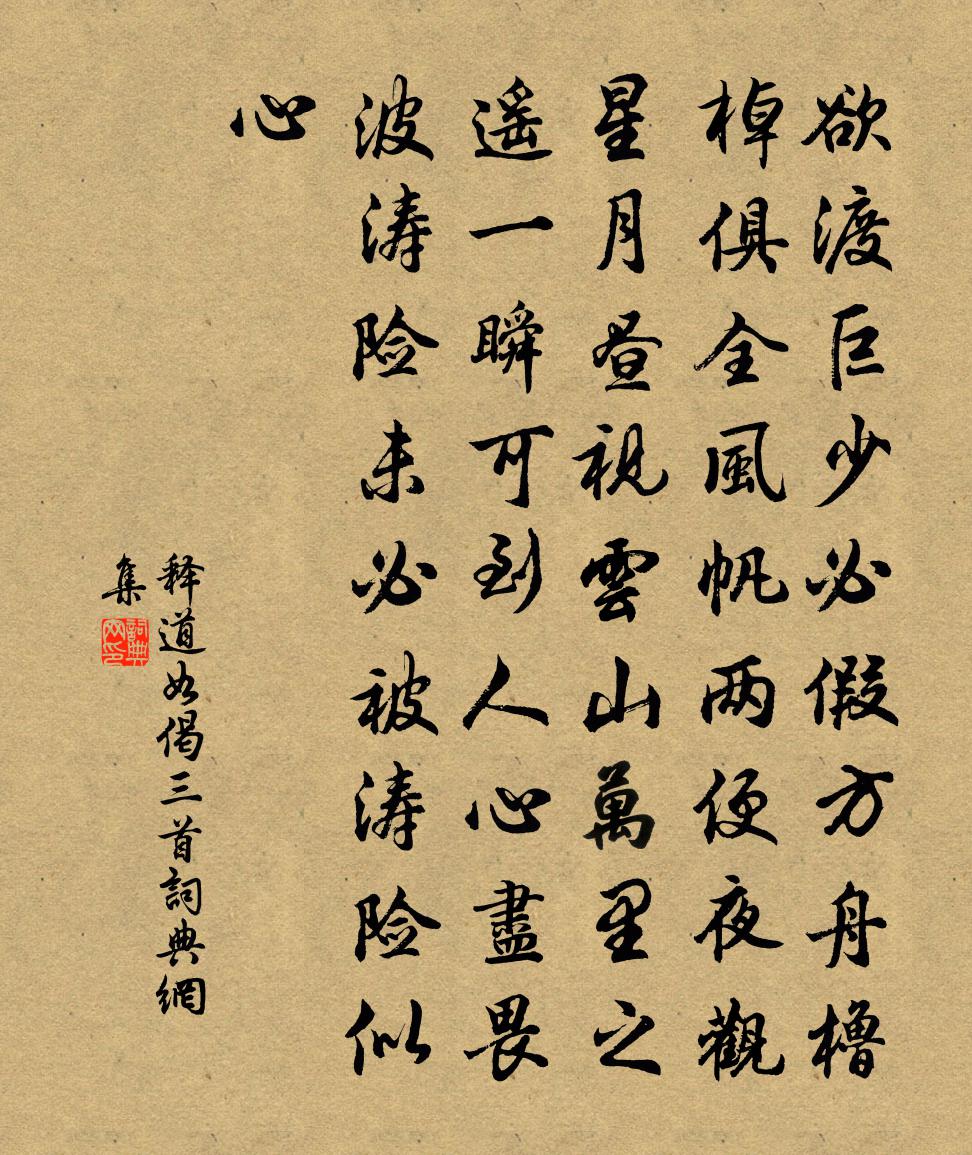 欲渡巨少必假方舟櫓
棹俱全風帆两便夜觀
星月昼視雲山萬里之
遥一瞬可到人心盡畏
波涛险未必被涛险似
心
释道如偈三首詞典網
集
詞典网印